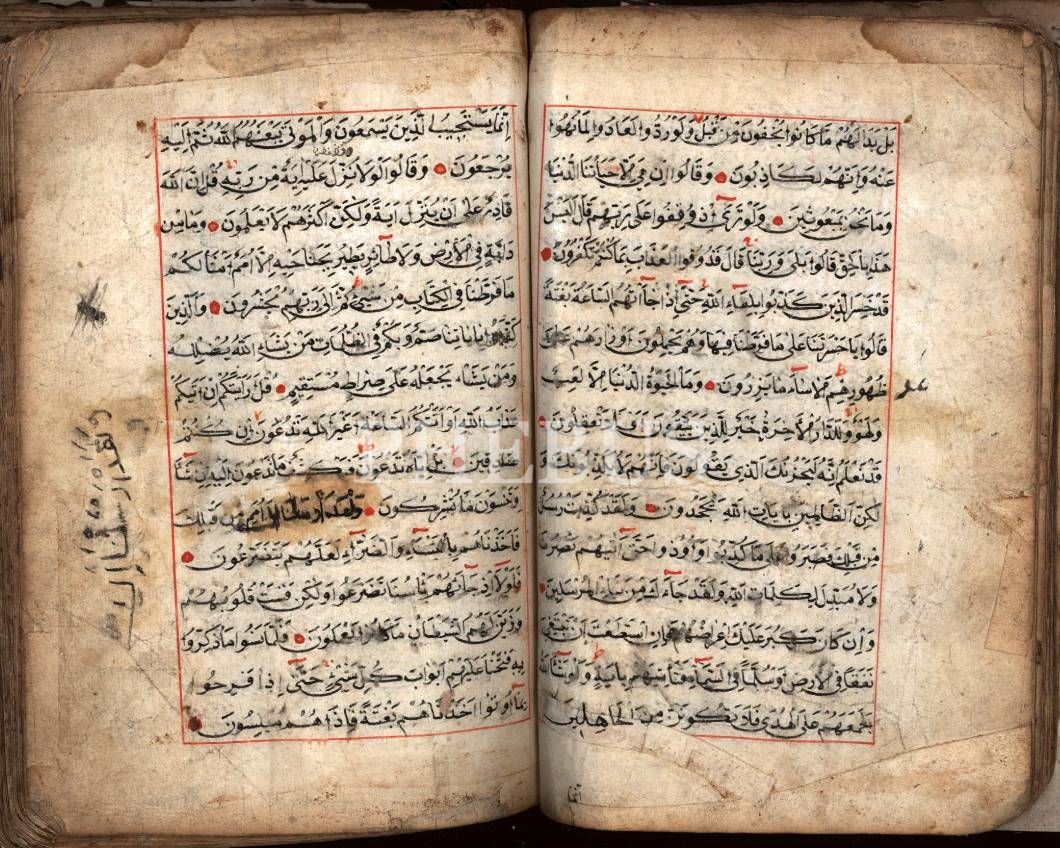 بل بدا لهم ما كانوا يخفون من قبل ولو ردوا لعادوا لما نهوا
عنه وانهم لكاذبون وقالوا ان هي الا حياتنا الدنيا
وما نحن بمبعوثين ولو ترى اذ وقفوا على ربهم قال اليس
هذا بالحق قالوا بلى وربنا قال فذوقوا العذاب بما كنتم تكفرون
قد خسر الذين كذبوا بلقاء الله حتى اذا جاءتهم الساعة بغتة
قالوا يا حسرتنا على ما فرطنا فيها وهم يحملون اوزارهم على
ظهورهم الا ساء ما يزرون وما الحيوة الدنيا الا لعب
ولهو وللدار الاخرة خير للذين يتقون افلا تعقلون
قد نعلم انه ليحزنك الذي يقولون فانهم لا يكذبونك و
لكن الظالمين بايات الله يجحدون ولقد كذبت رسل
من قبلك فصبروا على ما كذبوا واوذوا حتى اتيهم نصرنا
ولا مبدل لكلمات الله ولقد جاءك من نباء المرسلين
وان كان كبر عليك اعراضهم فان استطعت ان تبتغي
نفقا في الارض او سلما في السماء فتأتيهم باية ولو شاء الله
لجمعهم على الهدى فلا تكونن من الجاهلين
انما
انما يستجيب الذين يسمعون والموتى يبعثهم الله ثم اليه
يرجعون وقالوا لولا نزل عليه اية من ربه قل ان الله
قادر على ان ينزل اية ولكن اكثرهم لا يعلمون وما من
دابة في الارض ولا طائر يطير بجناحيه الا امم امثالكم
ما فرطنا في الكتاب من شيء ثم الى ربهم يحشرون والذين
كذبوا باياتنا صم وبكم في الظلمات من يشاء الله يضلله
ومن يشاء يجعله على صراط مستقيم قل ارايتكم ان اتيكم
عذاب الله او اتتكم الساعة اغير الله تدعون ان كنتم
صادقين بل اياه تدعون فيكشف ما تدعون اليه ان شاء
وتنسون ما تشركون ولقد ارسلنا الى امم من قبلك
فاخذناهم بالباساء والضراء لعلهم يتضرعون
فلولا اذ جاءهم باسنا تضرعوا ولكن قست قلوبهم
وزين لهم الشيطان ما كانوا يعملون فلما نسوا ما ذكروا
به فتحنا عليهم ابواب كل شيء حتى اذا فرحوا
بما اوتوا اخذناهم بغتة فاذا هم مبلسون
ولقد ارسلنا الى
PHEBUS